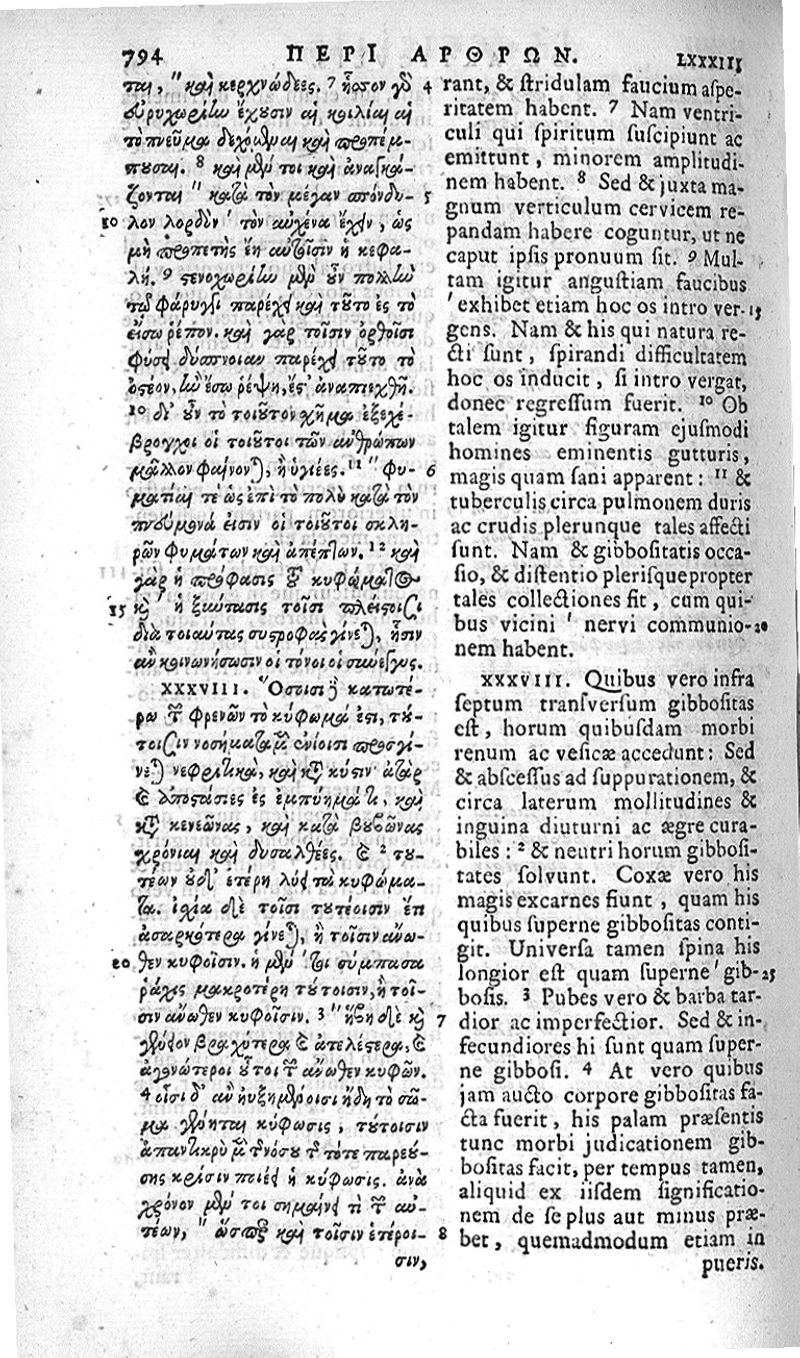 794 ΠΕΡΙ ΑΡΘΡΩΝ. LXXXIII
ται, " καὶ κερχνώδεες. 7 ἧσσον γὸ 4
εὐρυχωρίω ἔχουσιν αἱ κοιλίαι αἱ
τὸ πνεῦμα δεχόμεναι καὶ προπέμ-
πουσαι. 8 καὶ μὲν τοι καὶ ἀναγκά-
ζονται " κατὰ τὸν μέγαν σπόνδυ- 5
10 λον λορδὸν ' τὸν αὐχένα ἔχειν, ὡς
μὴ προπετὴς ἔῃ αὐτοῖσιν ἡ κεφα-
λή. 9 στενοχωρίω μὲν οὖν πολλω
τῷ φάρυγγι παρέχει καὶ τοῦτο ἐς τὸ
εἴσω ῥέπον. καὶ γὰρ τοῖσιν ὀρθοῖσι
φύσει δύσπνοιαν παρέχει τοῦτο τὸ
ὀστέον, ω ἔσω ῥέψῃ, ἔς' ἀναπιεχθῇ.
10 δι' οὖν τὸ τοιοῦτον χῆμα ἐξεχέ-
βρογχοι οἱ τοιοῦτοι τῶν ἀνθρώπων
μᾶλλον φαίνονται, ἢ ὑγιέες. 11 " φυ- 6
ματίαι τε ὡς ἐπὶ τὸ πολὺ κατὰ τὸν
πνεύμονά εἰσιν οἱ τοιοῦτοι σκλη-
ρῶν φυμάτων καὶ ἀπέπτων. 12 καὶ
γὰρ ἡ πρόφασις τοῦ κυφώματος
15 καὶ ἡ ξύντασις τοῖσι πλείστοισι
διὰ τοιαύτας συστροφὰς γίνεται, ᾗσιν
ἂν κοινωνήσωσιν οἱ τόνοι οἱ σύνεγγυς.
XXXVIII. "Ὅσοισι δὲ κατωτέ-
ρω τῶν φρενῶν τὸ κύφωμά ἐστι, του-
τοισιν νοσήματα μὲν ἐνίοισι προσγί-
νεται νεφριτικὰ, καὶ κατὰ κύστιν· ἀτὰρ
καὶ ἀποστάσιες ἐς ἐμπύημα τι, καὶ
κατὰ κενεῶνας, καὶ κατὰ βουβῶνας
χρόνιαι καὶ δυσαλθέες. καὶ 2 του-
τέων οὐδ' ἑτέρη λύει τὰ κυφώμα-
τα. ἰσχία δὲ τοῖσι τουτέοισιν ἔτι
ἀσαρκότερα γίνεται, ἢ τοῖσιν ἄνω-
20 θεν κυφοῖσιν. ἡ μὲν τοι σύμπασα
ῥάχις μακροτέρη τούτοισιν, ἢ τοῖ-
σιν ἄνωθεν κυφοῖσιν. 3 " ἥβη δὲ καὶ 7
γένειον βραχύτερα καὶ ἀτελέστερα, καὶ
ἀγονώτεροι οὗτοι τῶν ἄνωθεν κυφῶν.
4 οἷσι δ' ἂν ηὐξημένοισι ἤδη τὸ σῶ-
μα γένηται κύφωσις, τούτοισιν
ἀπαντικρὺ μὲν τῆς νόσου τῆς τότε παρεού-
σης κρίσιν ποιέει ἡ κύφωσις. ἀνὰ
χρόνον μέν τοι σημαίνει τι τῶν αὐ-
τέων, " ὥσπερ καὶ τοῖσιν ἑτέροι- 8
σιν,
rant, & stridulam faucium aspe-
ritatem habent. 7 Nam ventri-
culi qui spiritum suscipiunt ac
emittunt, minorem amplitudi-
nem habent. 8 Sed & juxta ma-
gnum verticulum cervicem re-
pandam habere coguntur, ut ne
caput ipsis pronuum sit. 9 Mul-
tam igitur angustiam faucibus
' exhibet etiam hoc os intro ver- 15
gens. Nam & his qui natura re-
cti sunt, spirandi difficultatem
hoc os inducit, si intro vergat,
donec regressum fuerit. 10 Ob
talem igitur figuram ejusmodi
homines eminentis gutturis,
magis quam sani apparent: 11 &
tuberculis circa pulmonem duris
ac crudis plerunque tales affecti
sunt. Nam & gibbositatis occa-
sio, & distentio plerisque propter
tales collectiones fit, cum qui-
bus vicini ' nervi communio- 20
nem habent.
XXXVIII. Quibus vero infra
septum transversum gibbositas
est, horum quibusdam morbi
renum ac vesicæ accedunt: Sed
& abscessus ad suppurationem, &
circa laterum mollitudines &
inguina diuturni ac ægre cura-
biles: 2 & neutri horum gibbosi-
tates solvunt. Coxæ vero his
magis excarnes fiunt, quam his
quibus superne gibbositas conti-
git. Universa tamen spina his
longior est quam superne ' gib- 25
bosis. 3 Pubes vero & barba tar-
dior ac imperfectior. Sed & in-
fecundiores hi sunt quam super-
ne gibbosi. 4 At vero quibus
jam aucto corpore gibbositas fa-
cta fuerit, his palam præsentis
tunc morbi judicationem gib-
bositas facit, per tempus tamen,
aliquid ex iisdem significatio-
nem de se plus aut minus præ-
bet, quemadmodum etiam in
pueris.